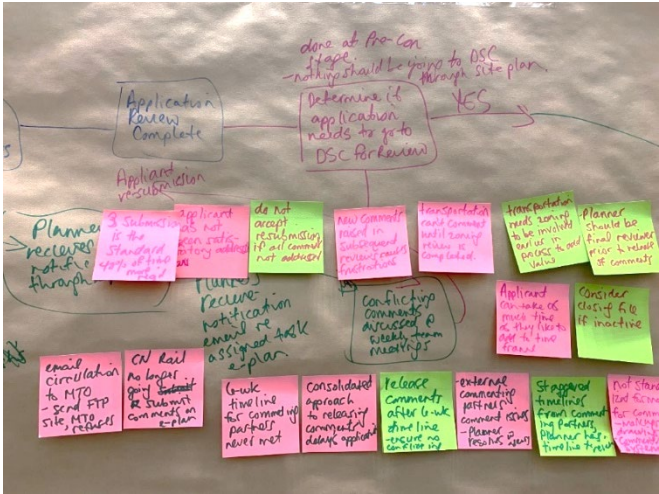 done at Pre-Con
stage.
- nothing should be going to DSC
through site plan.
Application
Review
Complete
Determine if
application
needs to go to
DSC for Review
YES
Applicant
re-submission
Planner
recieves
notific
through
3 submission
is the
standard
40% of time
applicant
has not
been satis-
do not
accept
resubmission
if all comments
not addressed
New Comments
raised in
subsequent
reviews causes
frustrations
transportation
comment
until zoning
review is
completed.
transportation
needs zoning
to be involved
earlier in
process to add
value
- Planner
should be
final reviewer
prior to release
of comments
Planner
recieve
notification
email re
assigned task
e-plan.
Conflicting
comments
discussed @
weekly team
meetings
Applicant
can take as
much time
as they like
to
Consider
closing file
if inactive
email
circulation
to MTO
- send FTP
site, MTO
refuses
CN Rail
no longer
going
submit
comments on
e-plan
6-wk
timeline
for commenting
partners
never met
Consolidated
approach
to releasing
comments
delays applicant
Release
comments
after 6-wk
timeline
- ensure no
conflicting
- external
commenting
partners
comment issues
- Planner
resolves
Staggered
timelines
from comment
ing partners,
Planner has
timeline
Not stan
for comm